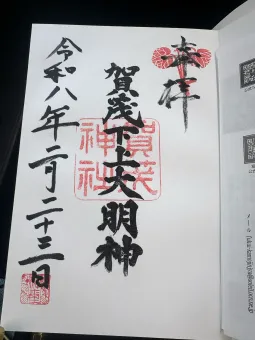 奉拝
賀茂下上大明神
賀茂神社
令和八年二月二十三日